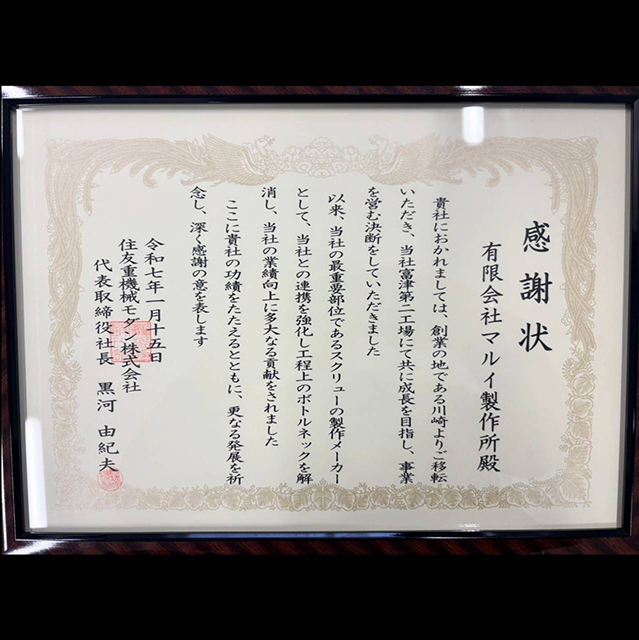 感謝状
有限会社マルイ製作所殿
貴社におかれましては、創業の地である川崎よりご移転
いただき、当社富津第二工場にて共に成長を目指し、事業
を営む決断をしていただきました
以来、当社の最重要部位であるスクリューの製作メーカー
として、当社との連携を強化し工程上のボトルネックを解
消し、当社の業績向上に多大なる貢献をされました
ここに貴社の功績をたたえるとともに、更なる発展を祈
念し、深く感謝の意を表します
令和七年一月十五日
住友重機械モダン株式会社
代表取締役社長 黒河由紀夫